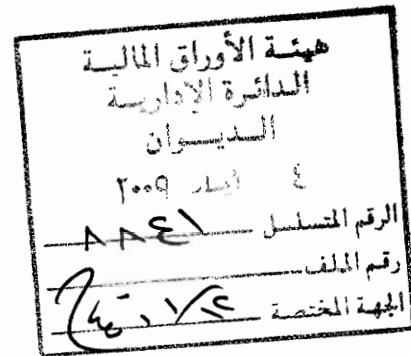 هيئة الأوراق المالية
الدائرة الإدارية
الديوان
٤ أيار ٢٠٠٩
الرقم المتسلسل ٨٨٤١
رقم الملف
الجهة المختصة